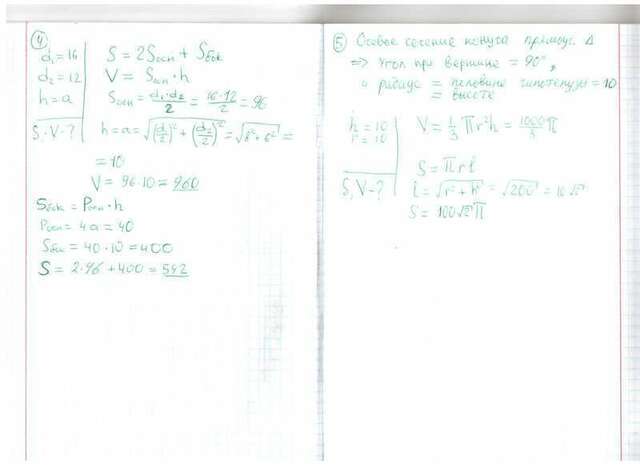 4
d₁ = 16
d₂ = 12
h = a
S, V - ?
S = 2Sосн + Sбок
V = Sосн · h
Sосн = d₁·d₂/2 = 16·12/2 = 96
h = a = √((d₁/2)² + (d₂/2)²) = √(8² + 6²) =
= 10
V = 96·10 = 960
Sбок = Pосн · h
Pосн = 4a = 40
Sбок = 40·10 = 400
S = 2·96 + 400 = 592
5 Осевое сечение конуса прямоуг. Δ
⇒ угол при вершине = 90°,
а радиус = половине гипотенузы = 10
= высоте
h = 10
r = 10
S, V - ?
V = 1/3 πr²h = 1000/3 π
S = πrl
l = √(r² + h²) = √200 = 10√2
S = 100√2 π